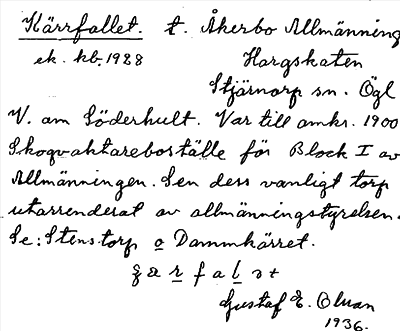 Kärrfallet. t. Åkerbo Allmänning
ek. kb. 1928 Hargskaten
Stjärnorp sn. Ögl
V. om Söderhult. Var till omkr. 1900
Skogvaktareboställe för Block I av
Allmänningen. Sen dess vanligt torp
utarrenderat av allmänningstyrelsen.
Se: Stenstorp o Dammkärret.
Gustaf E. Olson
1936.